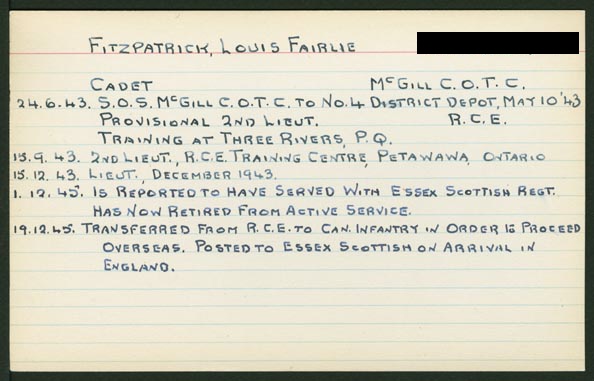 FITZPATRICK, LOUIS FAIRLIE
CADET McGILL C.O.T.C.
24.6.43. S.O.S. McGILL C.O.T.C. TO No.4 DISTRICT DEPOT, MAY 10 '43
PROVISIONAL 2ND LIEUT. R.C.E.
TRAINING AT THREE RIVERS, P.Q.
15.9.43. 2ND LIEUT., R.C.E. TRAINING CENTRE, PETAWAWA, ONTARIO
15.12.43. LIEUT., DECEMBER 1943.
1.12.45. IS REPORTED TO HAVE SERVED WITH ESSEX SCOTTISH REGT.
HAS NOW RETIRED FROM ACTIVE SERVICE.
19.12.45. TRANSFERRED FROM R.C.E. TO CAN. INFANTRY IN ORDER TO PROCEED
OVERSEAS. POSTED TO ESSEX SCOTTISH ON ARRIVAL IN
ENGLAND.